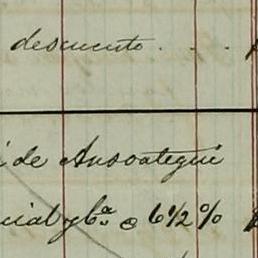 descuento . . .
de Ansoategui
cial y Cª @ 6½%